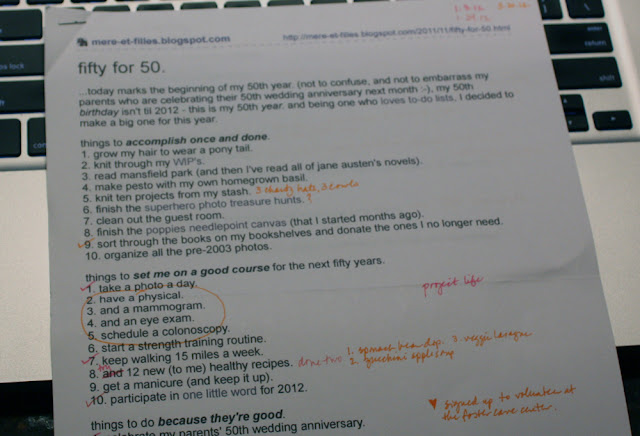 mere-et-filles.blogspot.com
http://mere-et-filles.blogspot.com/2011/11/fifty-for-50.html
fifty for 50.
...today marks the beginning of my 50th year. (not to confuse, and not to embarrass my
parents who are celebrating their 50th wedding anniversary next month :-), my 50th
birthday isn't til 2012 - this is my 50th year. and being one who loves to-do lists, I decided to
make a big one for this year.
things to accomplish once and done.
1. grow my hair to wear a pony tail.
2. knit through my WIP's.
3. read mansfield park (and then I've read all of jane austen's novels).
4. make pesto with my own homegrown basil.
5. knit ten projects from my stash. 3 charity hats, 3 cowls
6. finish the superhero photo treasure hunts. ?
7. clean out the guest room.
8. finish the poppies needlepoint canvas (that I started months ago).
9. sort through the books on my bookshelves and donate the ones I no longer need.
10. organize all the pre-2003 photos.
things to set me on a good course for the next fifty years.
1. take a photo a day. project life
2. have a physical.
3. and a mammogram.
4. and an eye exam.
5. schedule a colonoscopy.
6. start a strength training routine.
7. keep walking 15 miles a week.
8. try and 12 new (to me) healthy recipes. 1. 3. veggie lasagne
2. zucchini
9. get a manicure (and keep it up).
10. participate in one little word for 2012.
signed up to volunteer at
the foster care center.
things to do because they're good.
celebrate my parents' 50th wedding anniversary.